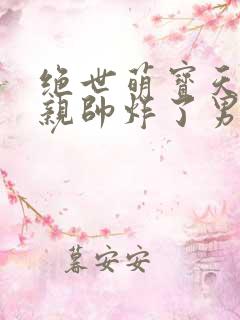 绝世萌宝天
亲帅炸了男
暮安安